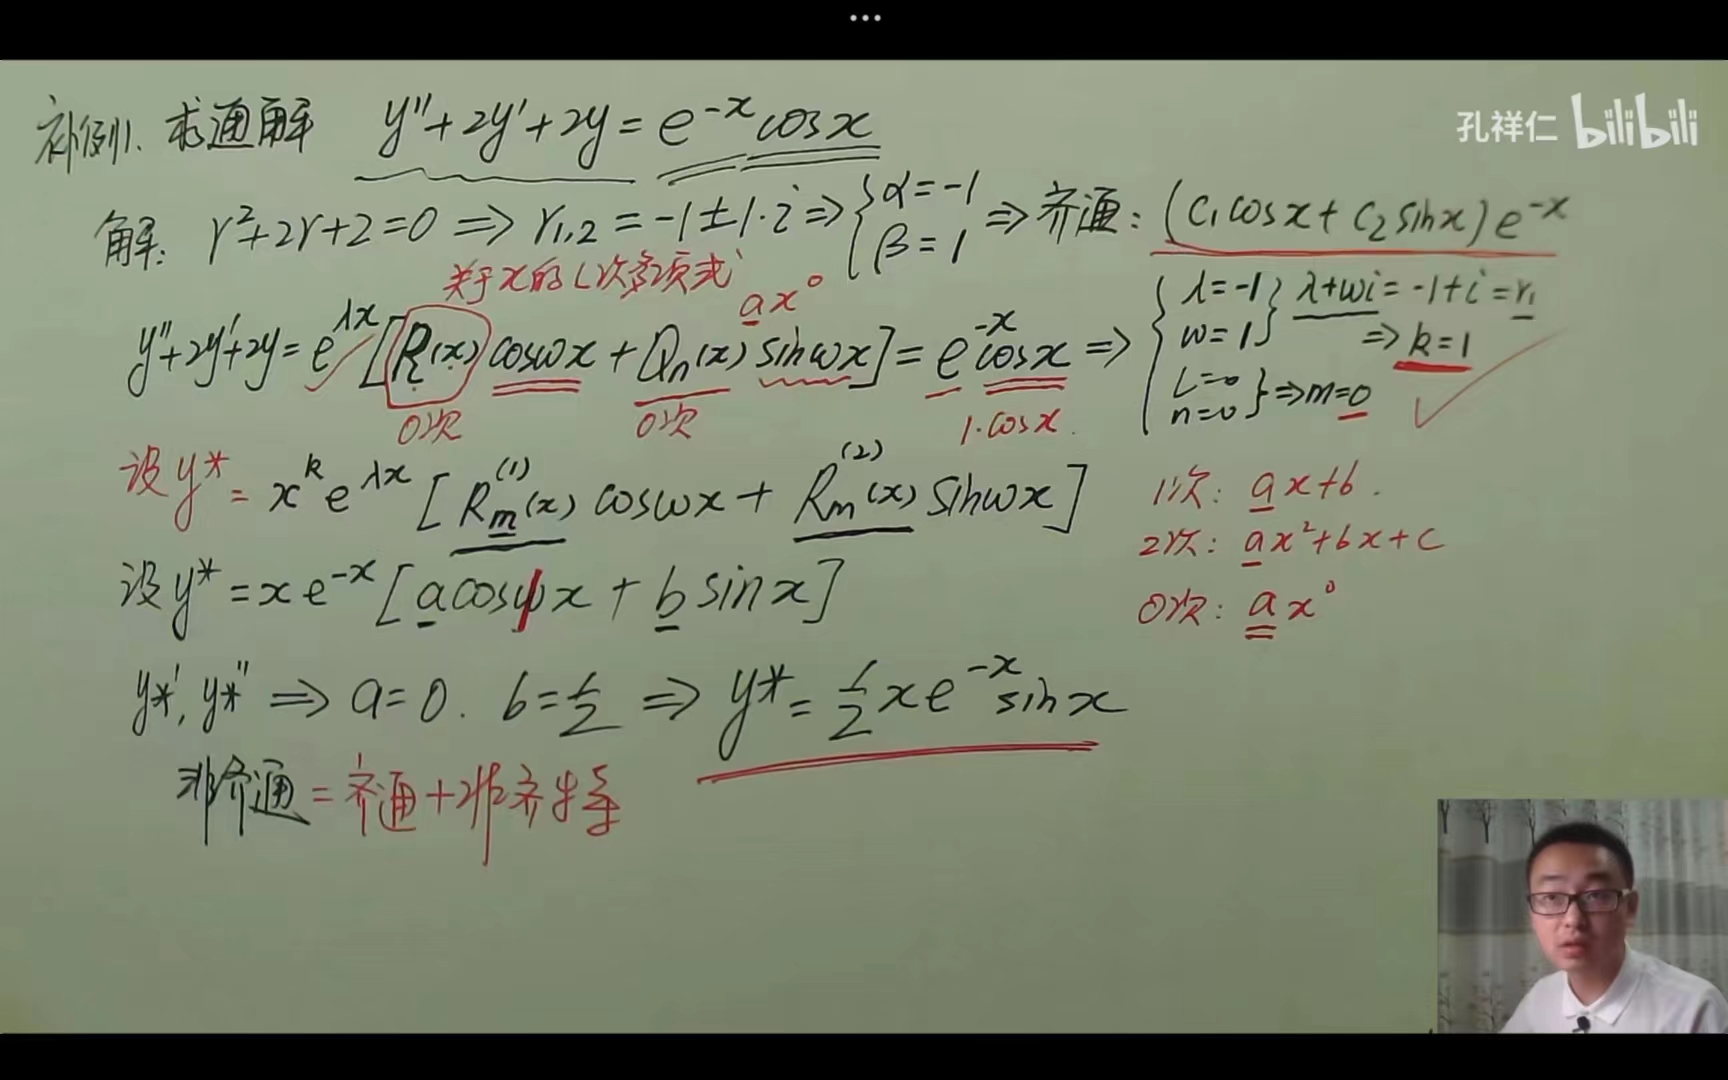 ...
孔祥仁 bilibili
补例1. 求通解 y''+2y'+2y=e^{-x}cosx
解: r²+2r+2=0 ⇒ r_{1,2}=-1±1·i ⇒ { α=-1 β=1 ⇒ 齐通: (C₁cosx+C₂sinx)e^{-x}
关于x的L次多项式 ax⁰
y''+2y'+2y=e^{λx}[P_L(x)cosωx+Q_n(x)sinωx]=e^{-x}cosx ⇒ { λ=-1 ω=1 } λ+ωi=-1+i=r₁ ⇒ k=1
L=0 n=0 } ⇒ m=0
0次 0次 1·cosx
设y*=x^k e^{λx}[R_m^{(1)}(x)cosωx+R_m^{(2)}(x)sinωx]
1次: ax+b.
2次: ax²+bx+c
0次: ax⁰
设y*=xe^{-x}[acosx+bsinx]
y*', y*'' ⇒ a=0. b=1/2 ⇒ y*=1/2xe^{-x}sinx
非齐通=齐通+非齐特